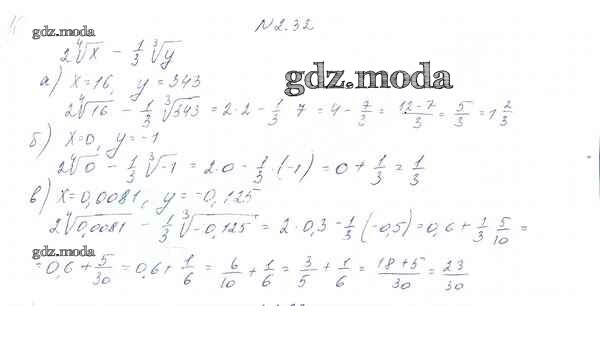 N 2.32
gdz.moda
2∜x − 1/3 ∛y
gdz.moda
а) x=16, y=343
2∜16 − 1/3 ∛343 = 2·2 − 1/3 7 = 4 − 7/3 = (12−7)/3 = 5/3 = 1 2/3
б) x=0, y=−1
2∜0 − 1/3 ∛−1 = 2·0 − 1/3 · (−1) = 0 + 1/3 = 1/3
в) x=0,0081, y=−0,125
2∜0,0081 − 1/3 ∛−0,125 = 2·0,3 − 1/3 (−0,5) = 0,6 + 1/3 5/10 =
gdz.moda
= 0,6 + 5/30 = 0,6 + 1/6 = 6/10 + 1/6 = 3/5 + 1/6 = (18+5)/30 = 23/30